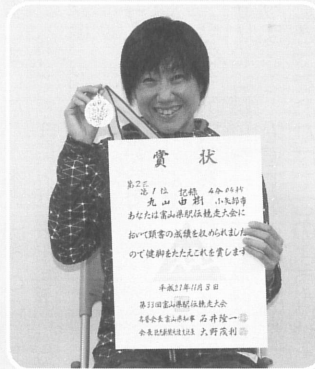 賞状
第2区
第1位 記録 4分04秒
丸山由樹 小矢部市
あなたは富山県駅伝競走大会に
おいて頭書の成績を収められました
ので健脚をたたえこれを賞します
平成21年11月8日
第33回富山県駅伝競走大会
名誉会長 富山県知事 石井隆一
大野茂利